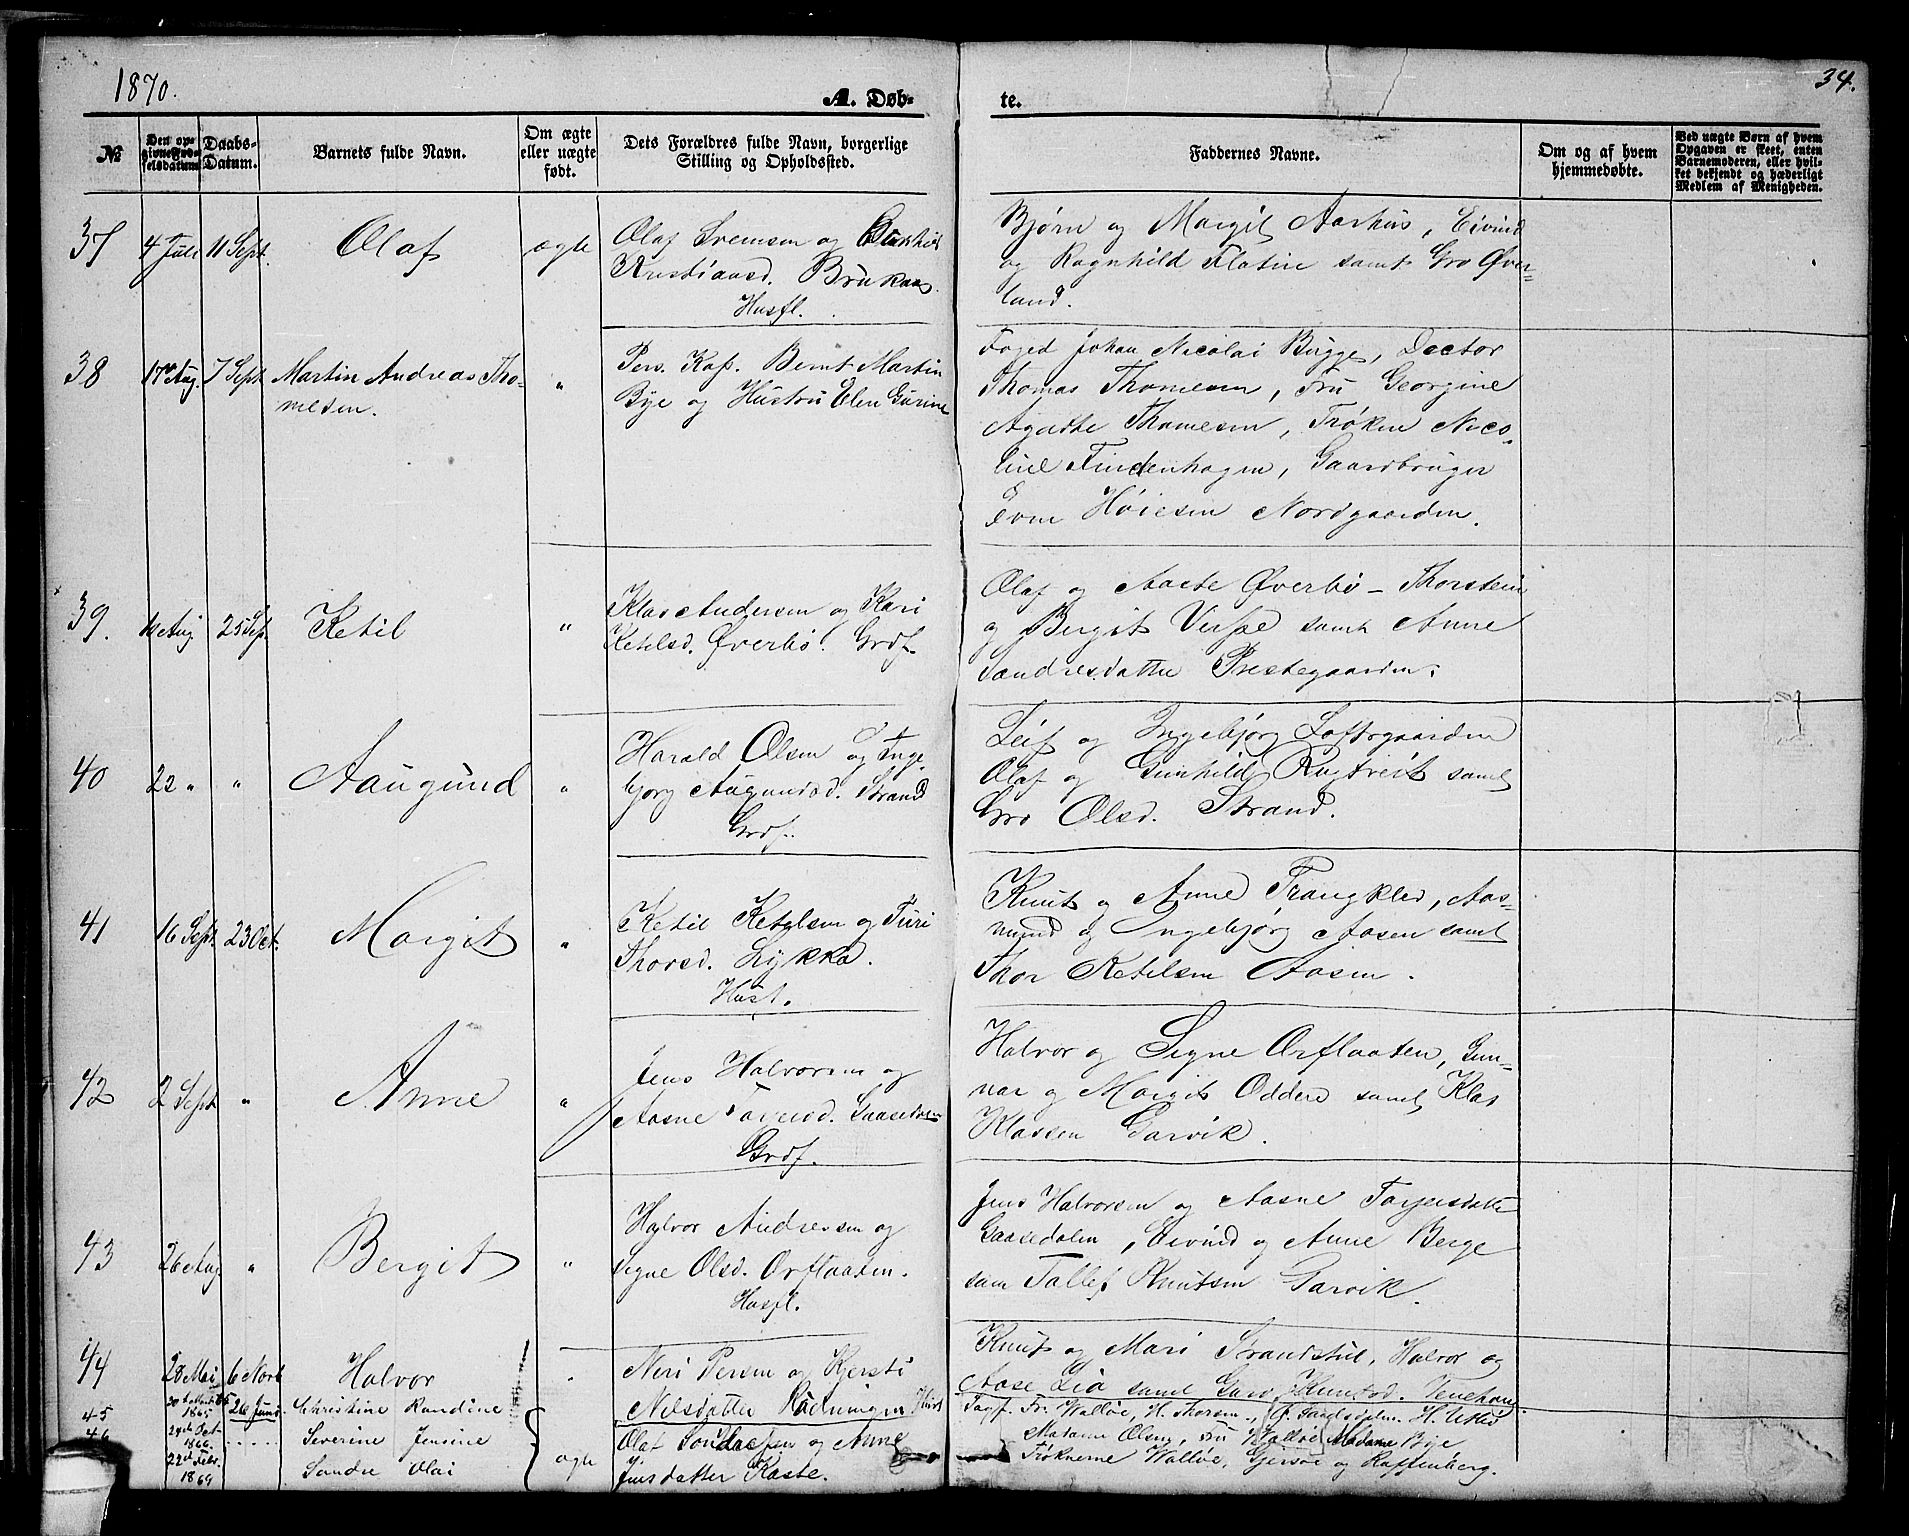 1870.
34.
A. Døb-
te.
№
Den op-
givne Fød-
selsdatum
Daabs-
Datum.
Barnets fulde Navn.
Om ægte
eller uægte
født.
Dets Forældres fulde Navn, borgerlige
Stilling og Opholdssted.
Faddernes Navne.
Om og af hvem
hjemmedøbte.
Ved uægte Børn af hvem
Opgaven er skeet, enten
Barnemoderen, eller hvil-
ket bekjendt og hæderligt
Medlem af Menigheden.
37 4 Juli 11 Sept. Olaf ægte
Olaf Svensen og
Kristiansd. Brukaas
Husfl.
Bjørn og Margit Aarhus, Eivind
og Ragnhild Flatin samt Gro Øver-
land.
38 17 Aug. 7 Sept Martin Andreas Tho-
mesen. "
Pers. Kap. Bernt Martin
Bye og Hustru Elen Gurine
Foged Johan Nicolai Bugge, Doctor
Thomas Thomesen, Fru Georgine
Agathe Thomesen, Frøken Nico-
line Findenhagen, Gaardbruger
Even Høiesen Nordgaarden.
39. Aug 25 Sep. Ketil "
Klas Andersen og Kari
Ketilsd. Øverbø. Grdf.
Olaf og Aaste Øverbø - Thorstein
og Bergit Versje samt Anne
Sandresdatter Prestegaarden.
40 22 " " Aaugund "
Harald Olsen og Inge-
bjorg Augundsd. Strand
Grdf.
Leif og Ingebjørg Loftsgaarden
Olaf og Gunhild Rugtveit samt
Gro Olsd. Strand.
41 16 Sept. 23 Oct. Margit "
Ketil Ketilsen og Turi
Thorsd. Lykka.
Husf.
Knut og Anne Trangkled, Aas-
mund og Ingebjørg Aasen samt
Thor Ketilsen Aasen.
42 2 Sept " Anne "
Jens Halvorsen og
Aasne Torjusd. Gaasedalen
Grdf.
Halvor og Signe Orflaaten, Gun-
nar og Margit Oddern samt Klas
Klassen Garvik.
43 26 Aug. " Bergit "
Halvor Andresen og
Signe Olsd. Orflaaten.
Husfl.
Jens Halvorsen og Aasne Torjusdatter
Gaasedalen, Eivind og Anne Berge
sam Tallef Knutsen Garvik.
44 28 Mai 6 Novb Halvor "
Neri Persen og Kjersti
Nilsdatter Rødningen
Knut og Mari Strandstul, Halvor og
Aase Lia samt Guro Knutsd. Venehaug.
45
1865 26 Juni. Christine Randine
46
24de Oct
1866. Severine Jensine
22de Febr.
1869 Sondre Olai
ægte
Olaf Sondresen og Anne
Jensdatter Kaste.
Fogf. Fr. Walløe, H. Thorsen, H.
Madame Olena, Fru Walløe, Madame Bye
Frøknerne Walløe, Gjersøe og Kaffenberg.